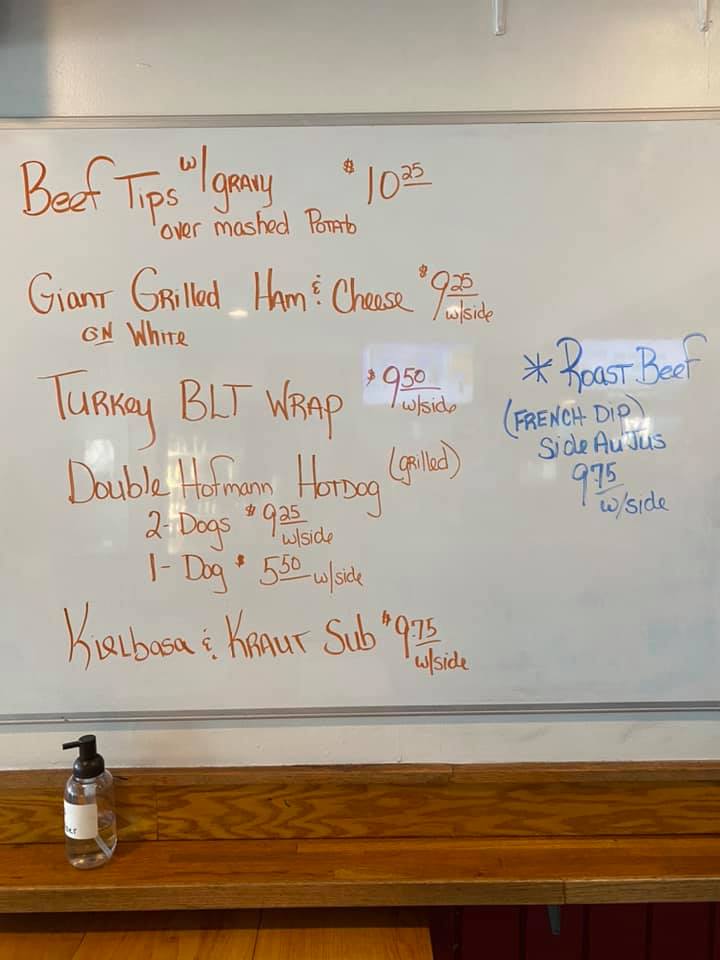 Beef Tips w/ gravy $10 25
over mashed Potato
Giant Grilled Ham & Cheese $9 25
w/side
on White
Turkey BLT Wrap $9 50
w/side
Double Hofmann Hotdog (grilled)
2- Dogs $9 25
w/side
1- Dog $ 5 50 w/side
Kielbasa & Kraut Sub $9.75
w/side
* Roast Beef
(French Dip)
Side Au Jus
9 75
w/side